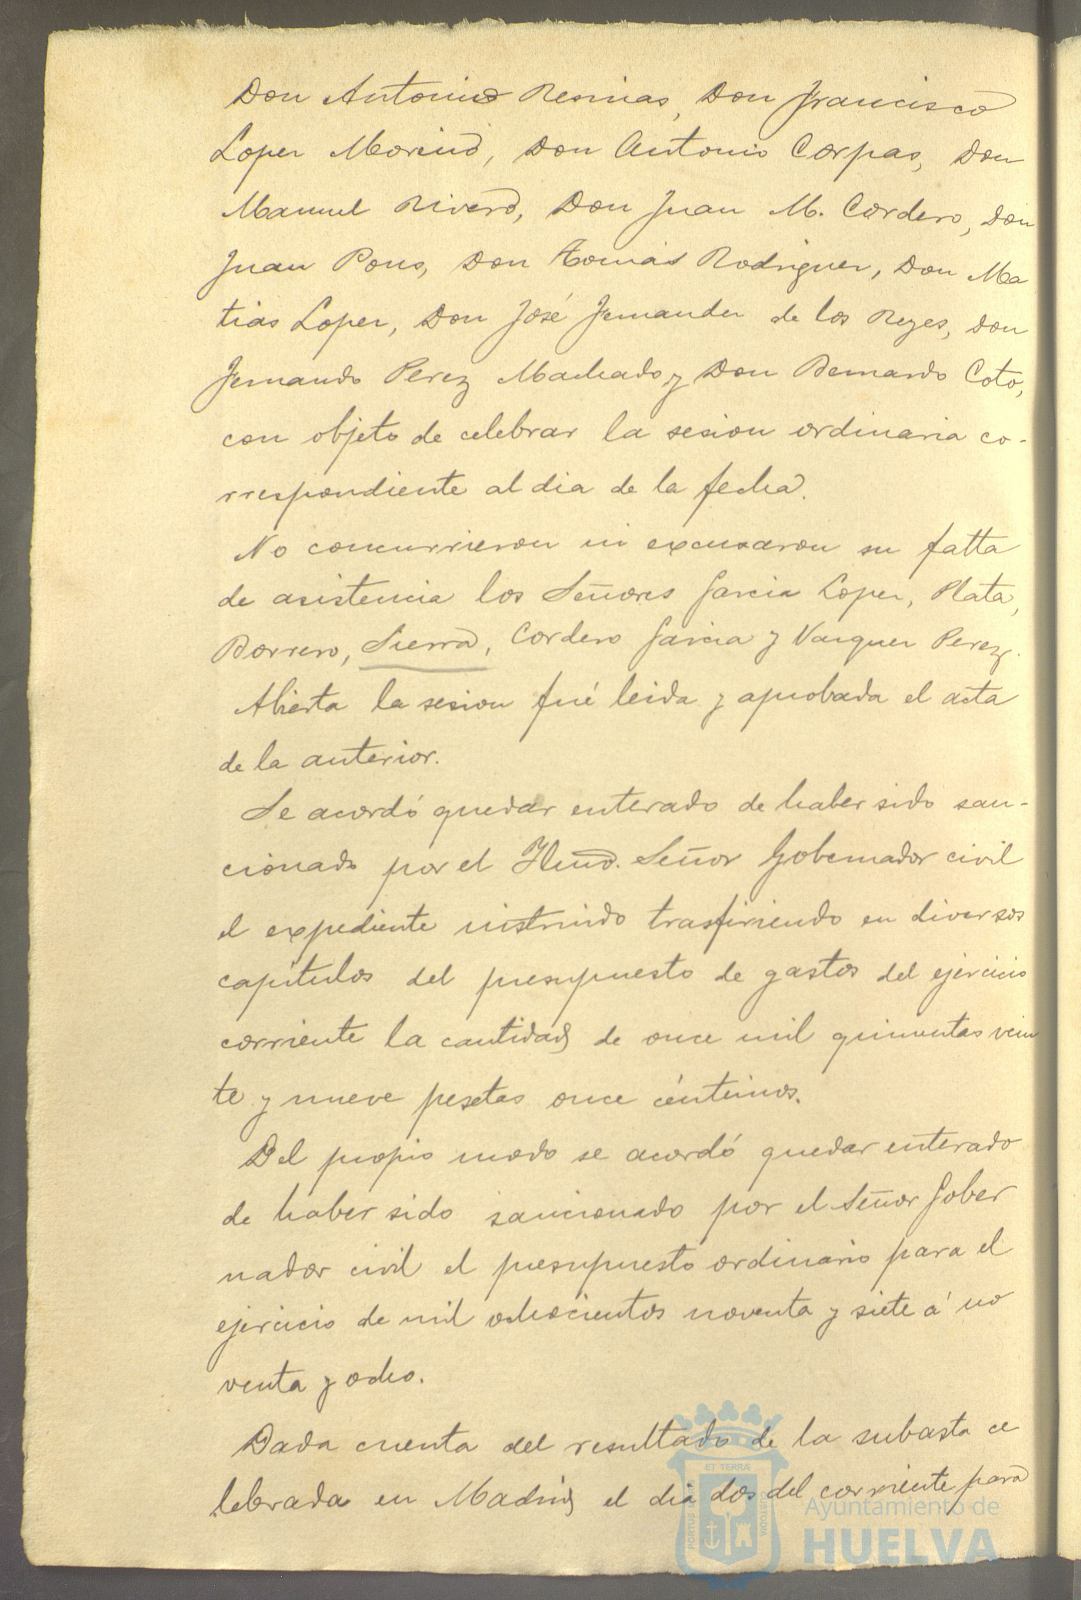 Don Antonio Resinas, Don Francisco
Loper Moreno, Don Antonio Corpas, Don
Manuel Rivero, Don Juan M. Cordero, Don
Juan Pons, Don Tomás Rodriguer, Don Ma
tias Loper, Don José Fernander de los Reyes, Don
Fernando Perez Machado y Don Bernardo Coto,
con objeto de celebrar la sesion ordinaria co-
rrespondiente al dia de la fecha.
No concurrieron ni excusaron su falta
de asistencia los Señores Garcia Loper, Plata,
Borrero, Sierra, Cordero Garcia y Varquer Perez.
Abierta la sesion fué leida y aprobada el acta
de la anterior.
Se acordó quedar enterado de haber sido san-
cionado por el Ilmo. Señor Gobernador civil
el expediente instruido trasfiriendo en diversos
capitulos del presupuesto de gastos del ejercicio
corriente la cantidad de once mil quinientas vein
te y nueve pesetas once céntimos.
Del propio modo se acordó quedar enterado
de haber sido sancionado por el Señor Gober
nador civil el presupuesto ordinario para el
ejercicio de mil ochocientos noventa y siete á no
venta y ocho.
Dada cuenta del resultado de la subasta ce
lebrada en Madrid el dia dos del corriente para
ET TERRA
CUSTODIA
Ayuntamiento de
HUELVA